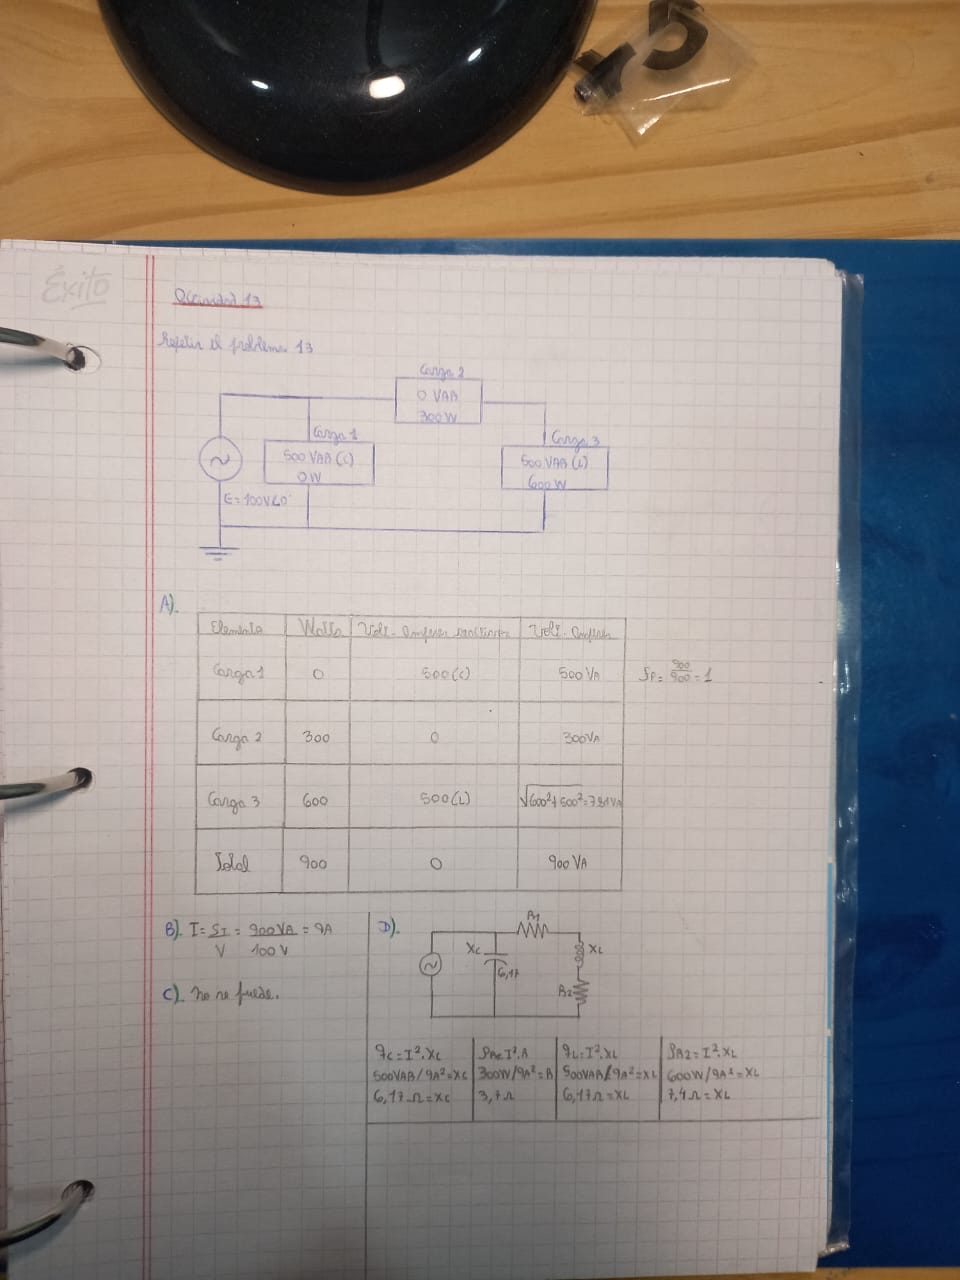 Éxito
Actividad 13
Repetir el problema 13
Carga 2
0 VAR
300 W
Carga 1
500 VAR (C)
0 W
Carga 3
500 VAR (L)
600 W
E = 100V∠0°
A).
Elemento | Watts | Volt-Amperes reactivos | Volt-Amperes
Carga 1 | 0 | 500 (C) | 500 VA
Fp = 900/900 = 1
Carga 2 | 300 | 0 | 300 VA
Carga 3 | 600 | 500 (L) | √600²+500² = 781 VA
Total | 900 | 0 | 900 VA
B). I = ST/V = 900 VA/100 V = 9A
C). No se puede.
D).
R1
XC
6,17
XL
R2
qC = I².XC
500VAR/9A² = XC
6,17 Ω = XC
PR = I².R
300W/9A² = R
3,7 Ω
qL = I².XL
500VAR/9A² = XL
6,17 Ω = XL
PR2 = I².XL
600W/9A² = XL
7,4 Ω = XL